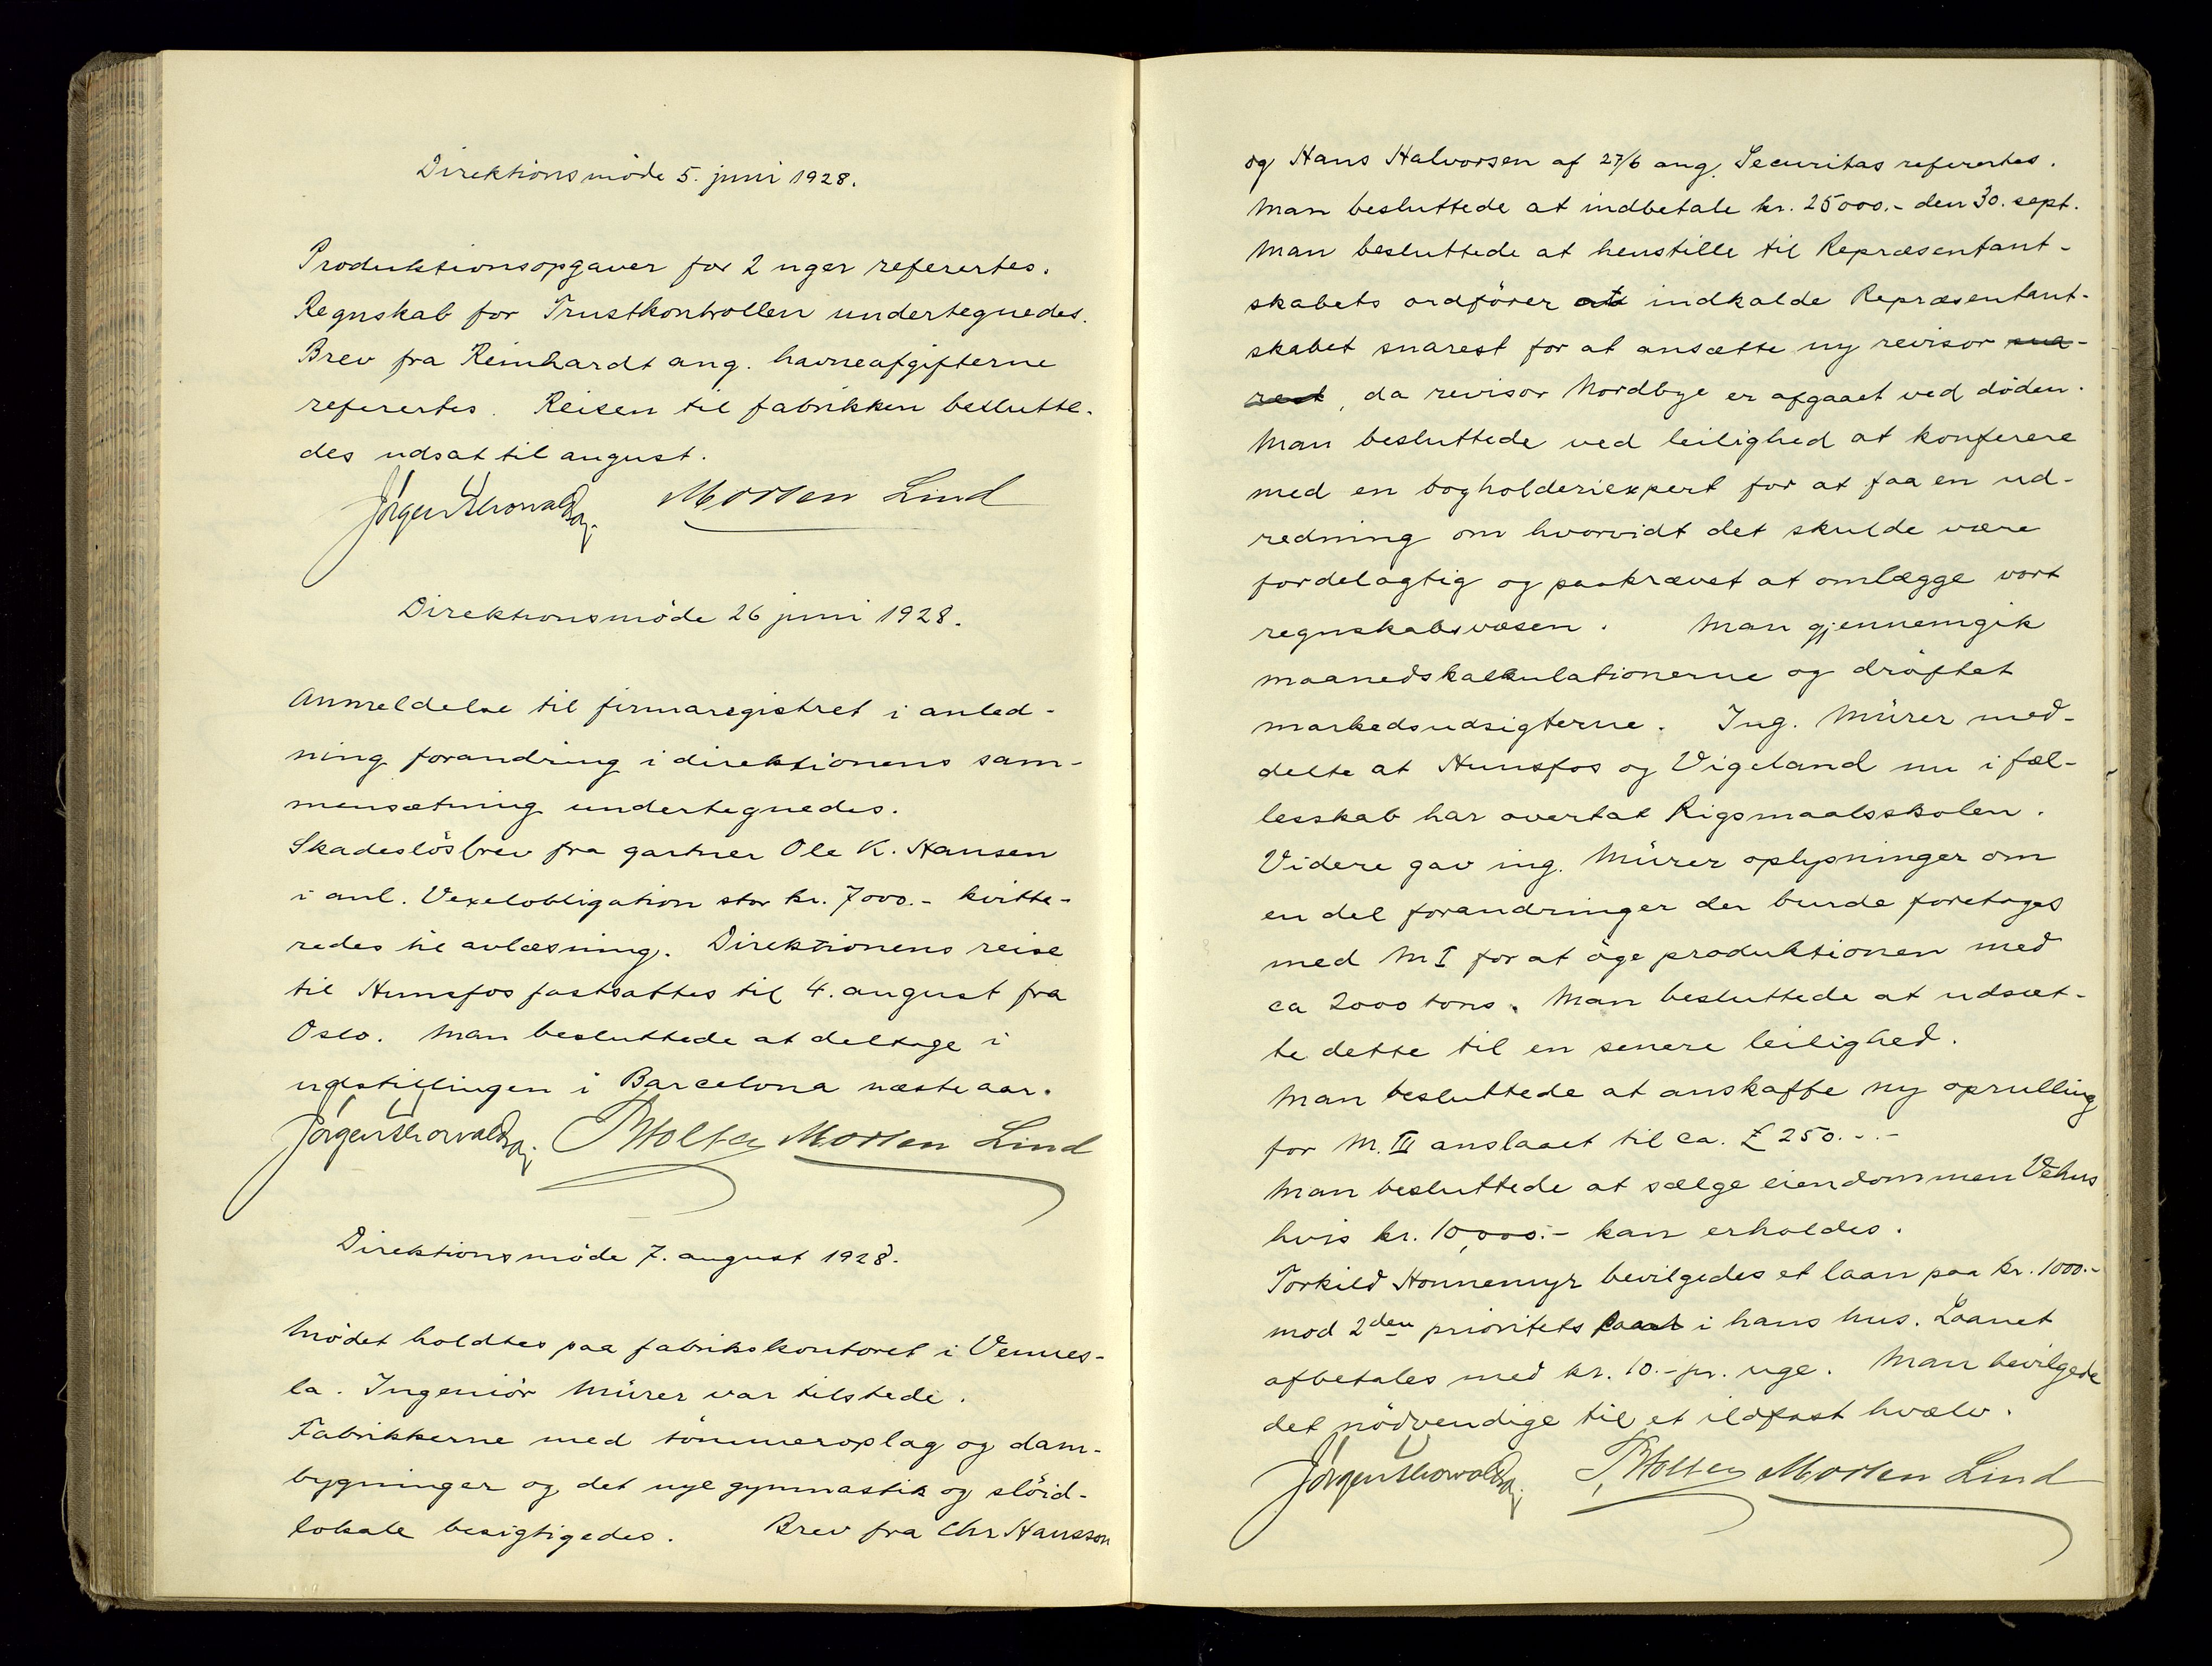 Direktionsmöde 5. juni 1928.
Produktionsopgaver for 2 uger referertes.
Regnskab for Trustkontrollen undertegnedes.
Brev fra Reinhardt ang. havneafgifterne
referertes. Reisen til fabrikken beslutte-
des udsat til august.
Jörgen Thorvaldsen Morten Lind
Direktionsmöde 26 juni 1928.
Anmeldelse til firmaregistret i anled-
ning forandring i direktionens sam-
mensætning undertegnedes.
Skadeslösbrev fra gartner Ole K. Hansen
i anl. Vexelobligation stor kr. 7000.- kvitte-
redes til avlæsning. Direktionens reise
til Hunsfos fastsattes til 4. august fra
Oslo. Man besluttede at deltage i
udstillingen i Barcelona næste aar.
Jörgen Thorvaldsen Holter Morten Lind
Direktionsmöde 7. august 1928.
Mödet holdtes paa fabrikskontoret i Vennes-
la. Ingeniör Mürer var tilstede.
Fabrikkerne med tömmeroplag og dam-
bygninger og det nye gymnastik og slöid-
lokale besigtigedes. Brev fra Chr Hansson
og Hans Halvorsen af 27/6 ang. Securitas referertes.
Man besluttede at indbetale kr. 25000.- den 30. sept.
Man besluttede at henstille til Repræsentant-
skabets ordförer at indkalde Repræsentant-
skabet snarest for at ansætte ny revisor sna-
rest, da revisor Nordbye er afgaaet ved döden.
Man besluttede ved leilighed at konferere
med en bogholderiexpert for at faa en ud-
redning om hvorvidt det skulde være
fordelagtig og paakrævet at omlægge vort
regnskabsvæsen. Man gjennemgik
maanedskalkulationerne og dröftet
markedsudsigterne. Ing. Mürer med-
delte at Hunsfos og Vigeland nu i fæl-
lesskab har overtat Rigsmaalsskolen.
Videre gav ing. Mürer oplysninger om
en del forandringer der burde foretages
med M I for at öge produktionen med
ca 2000 tons. Man besluttede at udsæt-
te dette til en senere leilighed.
Man besluttede at anskaffe ny oprulling
for M. III anslaaet til ca. £ 250.-.-
Man besluttede at sælge eiendommen Vehus
hvis kr. 10,000.- kan erholdes.
Torkild Honnemyr bevilgedes et laan paa kr. 1000.-
mod 2den prioritets pant i hans hus. Laanet
afbetales med kr. 10.- pr. uge. Man bevilgede
det nödvendige til et ildfast hvælv.
Jörgen Thorvaldsen Holter Morten Lind